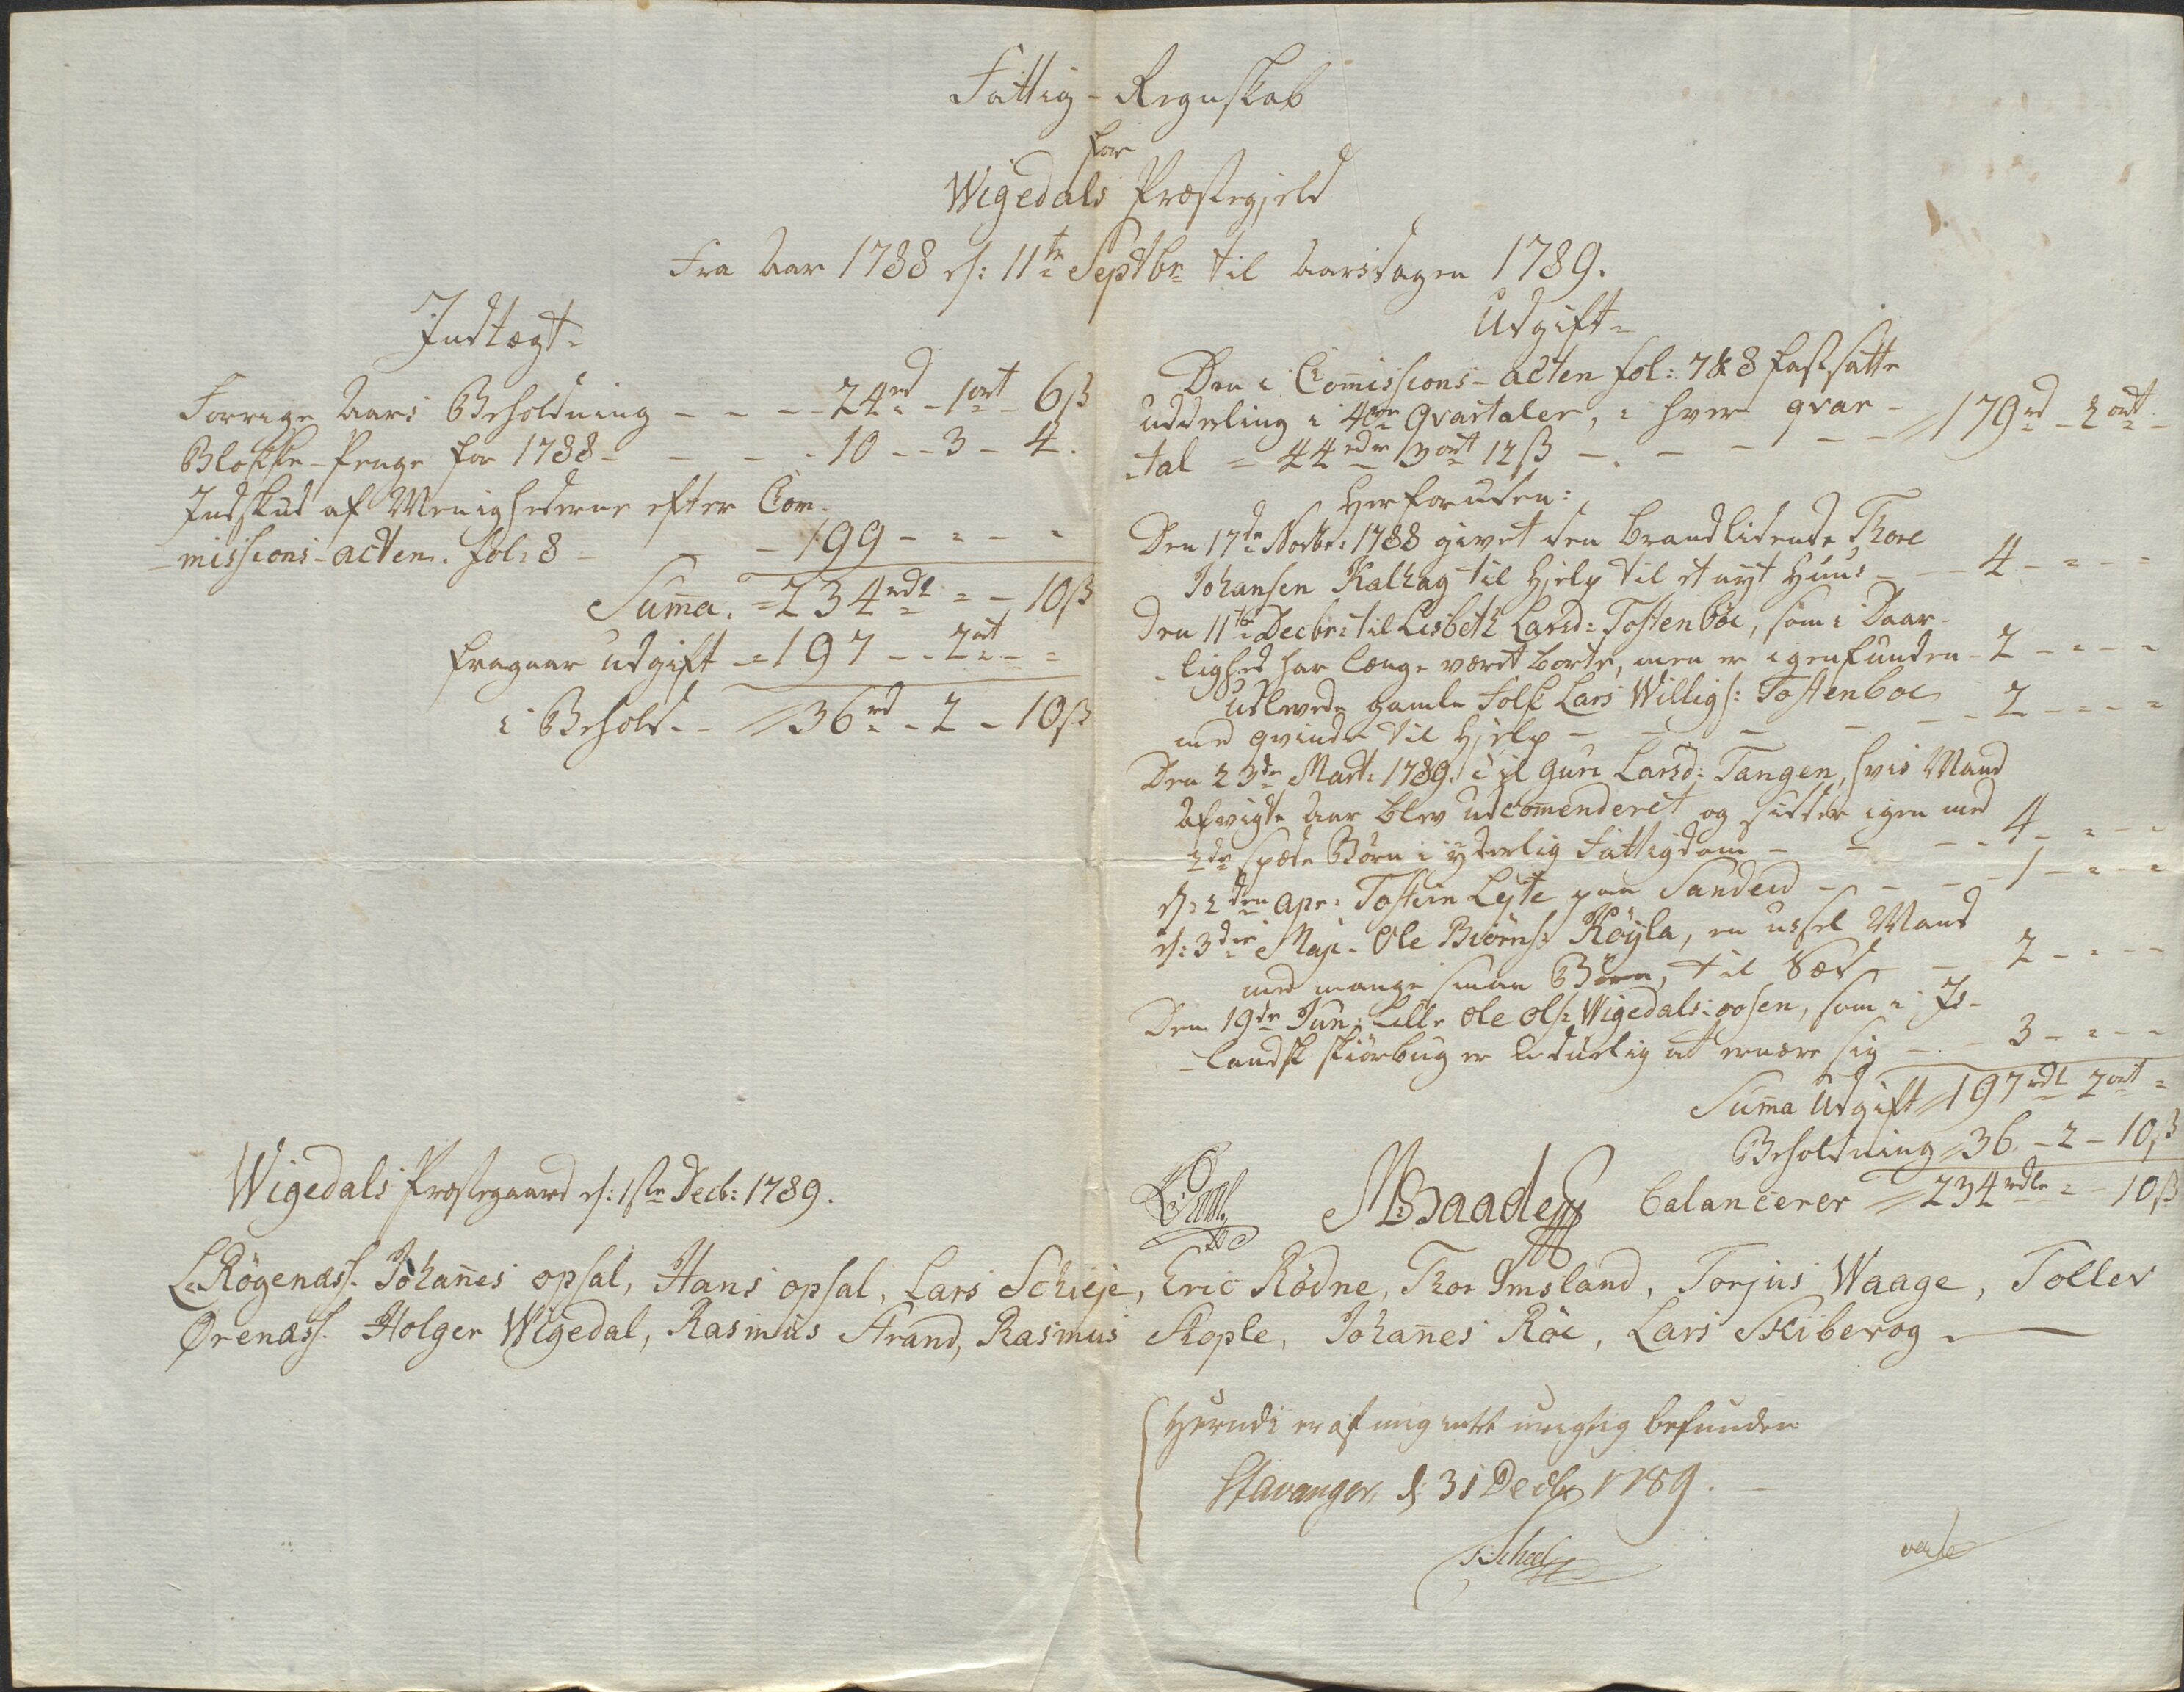 Fattig-Regnskab
for
Wigedals Præstegield
Fra Aar 1788 d: 11te Septbr til Aarsdagen 1789.
Indtægt
Forrige Aars Beholdning - - - 24rd - 1ort - 6ß
Blokke-Penge for 1788 - - - - 10 - - 3 - 4.
Indskud af Menighederne efter Com-
-missions-acten. fol: 8 - - - 199 - = - =
Summa. = 234rdl = - 10ß
fragaar Udgift = 197 - - 2ort - =
i Behold. - = 36rd - 2 - 10ß
Udgift
Den i Commissions-acten fol: 7 & 8 fastsatte
uddeling i 4re Qvartaler, i hver qvar-
-tal = 44rdr 3ort 12ß - - - - = 179rd - 2ort -
Herforuden:
Den 17de Novbr: 1788 givet den brandlidende Thore
Johansen Kalhag til Hjelp til et nyt Huus - - 4 - = - =
Den 11te Decbr: til Lisbeth Larsd: Tostenböe, som i Daar-
-lighed har længe været borte, men er igenfunden - 2 - = - =
Udlevede gamle Folk Lars Willigs: Tostenboe
med qvinde til Hjelp - - - - - 2 - = - =
Den 23de Mart: 1789. til Guri Larsd: Tangen, hvis Mand
afvigte Aar blev udcommenderet og sidder igen med
2de spæde Börn i yderlig Fattigdom - - - - 4 - = - =
d: 2den Apr: Tostein Lejte paa Sandeid - - - - 1 - = - =
d: 3die Maji. Ole Biörns: Röyla, en ussel Mand
med mange smaa Börn, til Sæd - - 2 - = - -
Den 19de Jun: Lille Ole Ols: Wigedals-oosen, som i Is-
-landsk skiörbug er udüelig at ernære sig - - 3 - = - -
Summa Udgift = 197rdl 2ort =
Beholdning = 36. - 2 - 10ß
balancerer = 234rdlr = - 10ß
Wigedals Præstegaard d: 1ste Decb: 1789.
MBaade
L. Rögenæss. Johannes opsal, Hans opsal, Lars Schieje, Eric Rödne, Thor Imsland, Torjus Waage, Tollev
Ørenæss. Holger Wigedal, Rasmus Strand, Rasmus Skople, Johannes Röe, Lars Skiberog
Herudi er af mig intet urigtig befunden
Stavanger, d: 31 Decbr 1789.
Scheel
verte